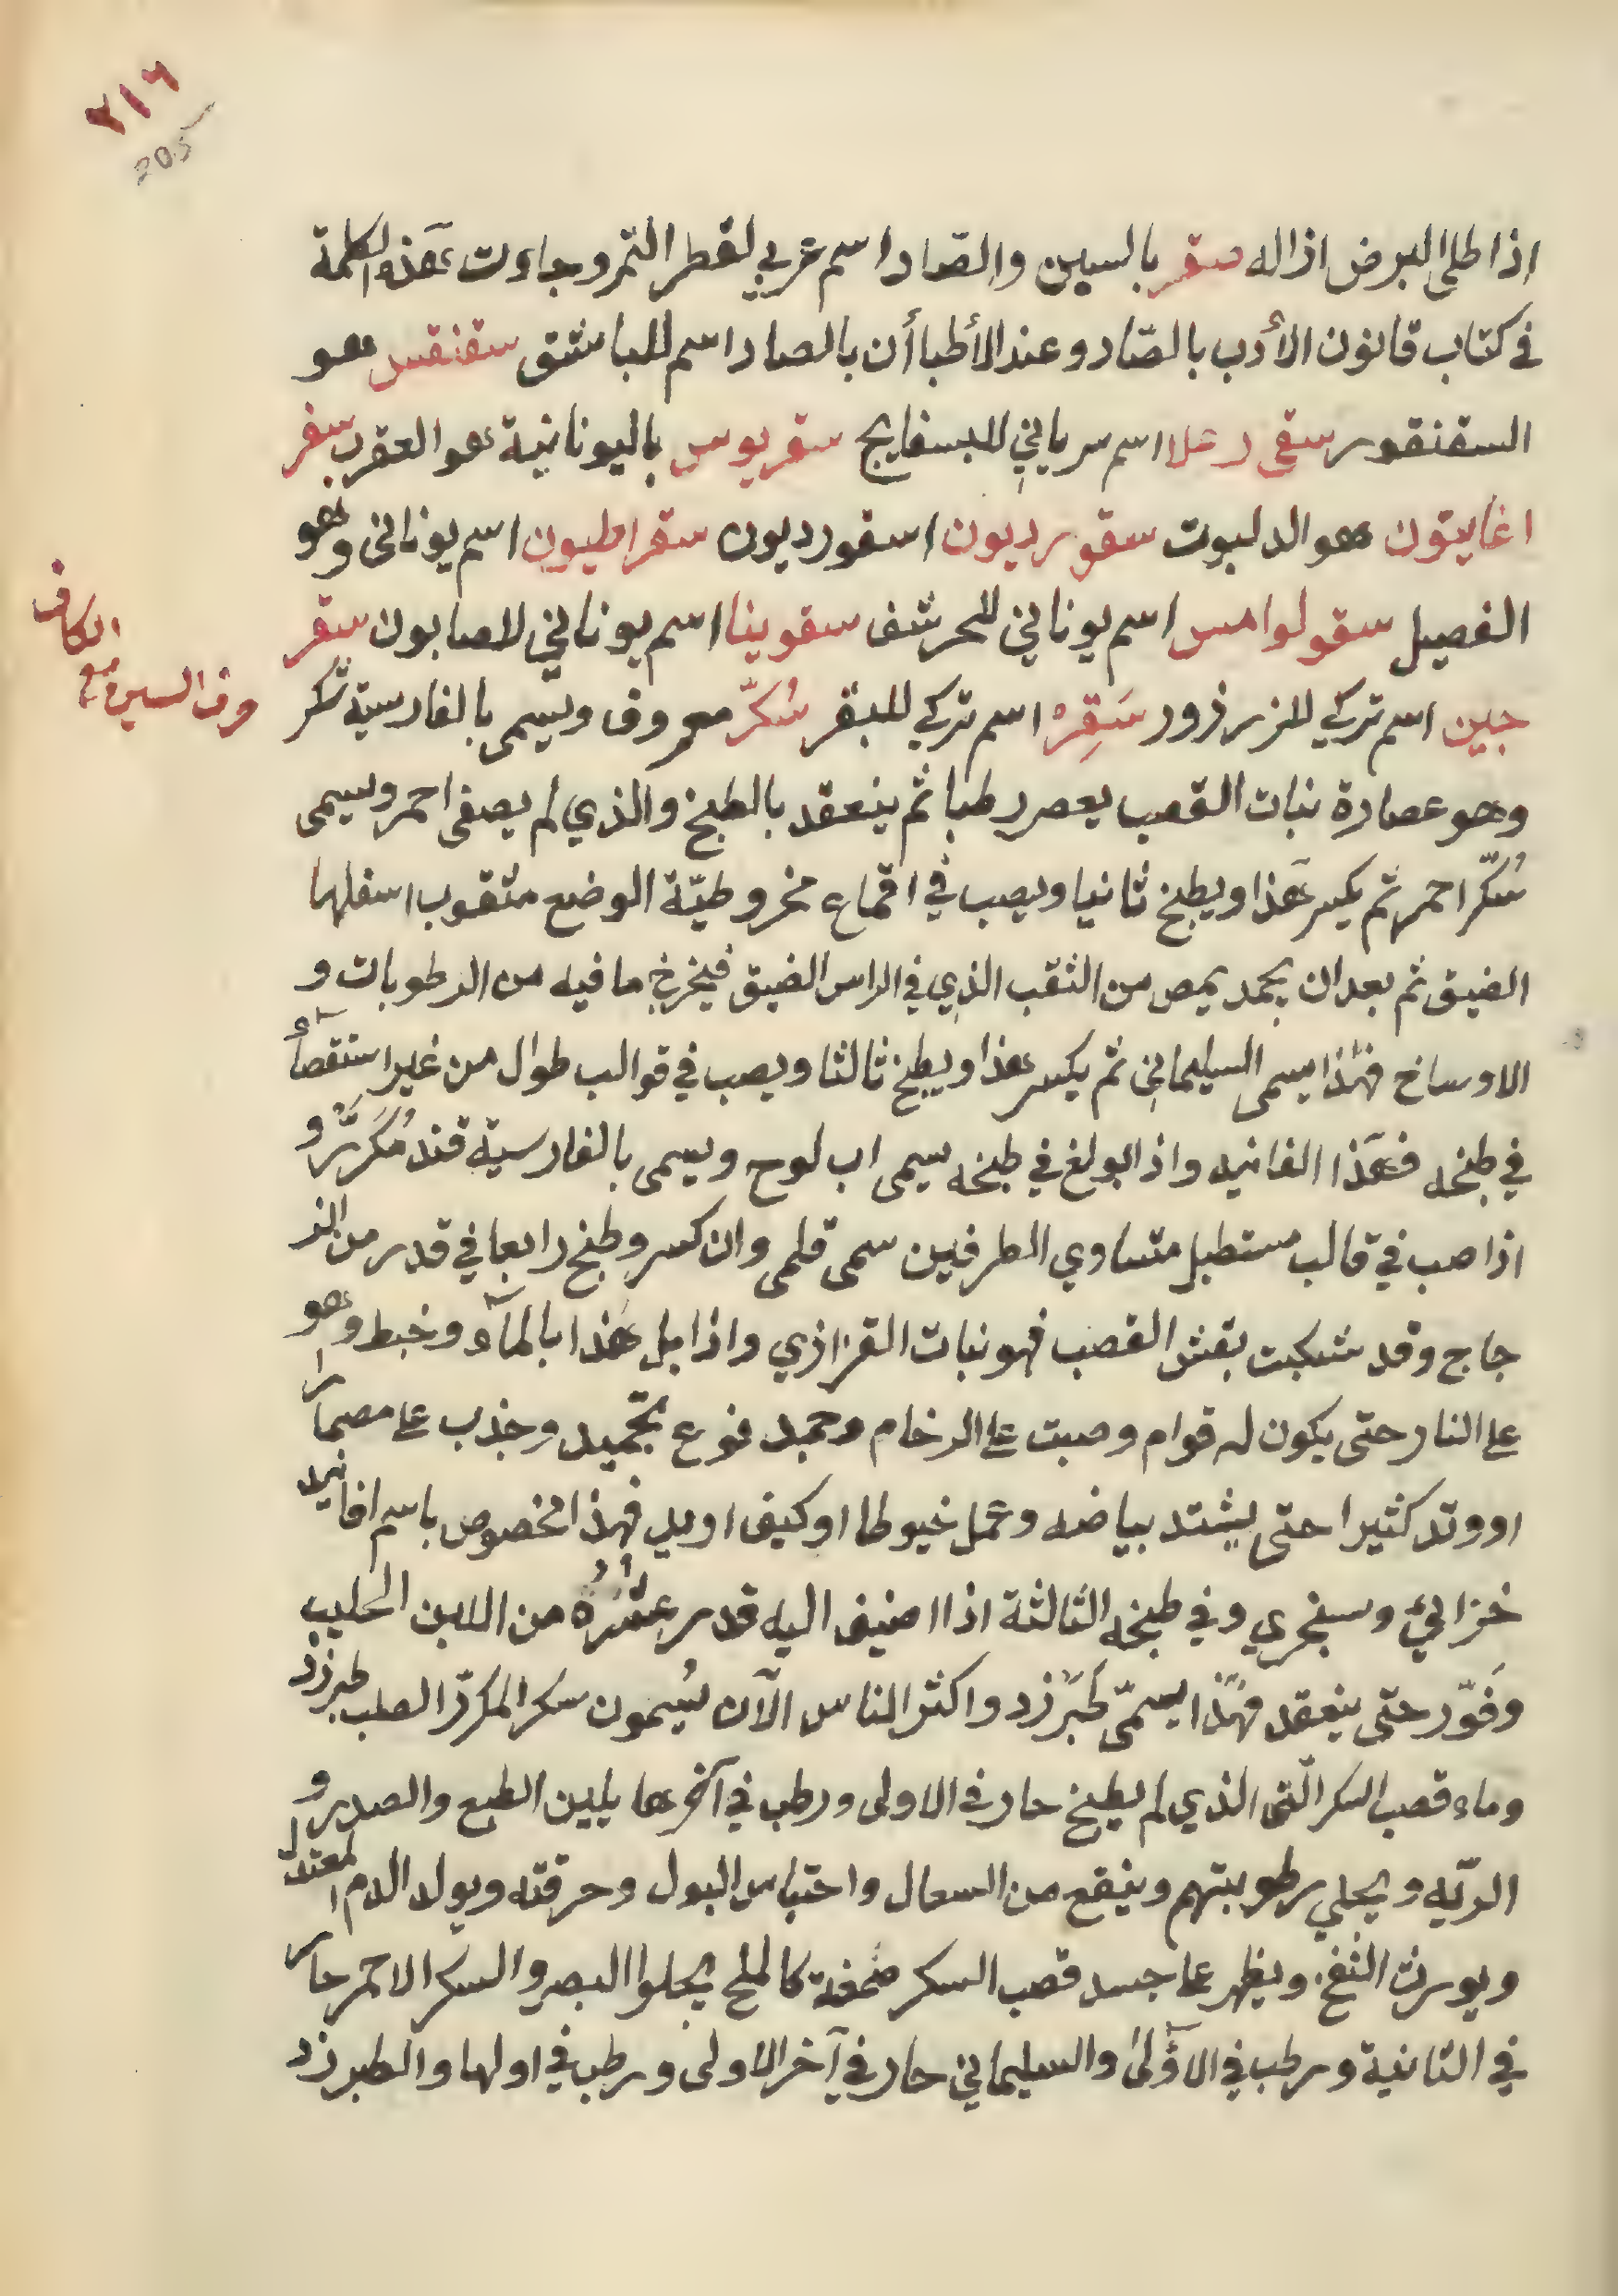 ٢١٦
205
اذا طلى البرض ازاله سقر بالسين والصاد اسم عربي لقطر التمر وجاءت هذه الكلمة
في كتاب قانون الأدب بالصّاد وعند الأطبا أن بالصاد اسم للباشق سقنقس هو
السقنقور سقى رعلا اسم سرياني للبسفايج سقريوس باليونانية هو العقرب سفر
اغاييتون هو الدلبوت سقورديون اسقورديون سقراطيون اسم يوناني وهو
الفصيل سقولوامس اسم يوناني للحرشف سقوينا اسم يوناني للصابون سقر
حرف السين مع الكاف
جين اسم تركي للزرزور سَقِرْ اسم تركي للبقر سُكّر معروف ويسمى بالفارسية شكر
وهو عصارة نبات القصب يعصر رطبا ثم ينعقد بالطبخ والذي لم يصفى احمر ويسمى
سُكّر احمر ثم يكسر هذا ويطبخ ثانيا ويصب في اقماع مخروطيّة الوضع مثقوب اسفلها
الضيق ثم بعد ان يجمد يمص من الثقب الذي في الراس الضيق فيخرج ما فيه من الرطوبات و
الاوساخ فهذا يسمى السليماني ثم يكسر هذا ويطبخ ثالثا ويصب في قوالب طوال من غير استقصآء
في طبخه فهذا الفانيد واذا بولغ في طبخه سيمى اب لوح ويسمى بالفارسية قند مُكَرَّرْ و
اذا صب في قالب مستطيل متساوي الطرفين سمى قلمى وان كسر وطبخ رابعا في قدر من الز
جاج وقد شبكت بقش القصب فهو نبات القزازي واذا بل هذا بالمآء وخبط وهو
على النار حتى يكون له قوام وصبت على الرخام وجمد فوع تجميد وجذب على مصمارا
او وتد كثيرا حتى يشتد بياضه وعمل خيوطا او كيف اريد فهذا مخصوص باسم افانيد
خزائي وسنجري وفي طبخه الثالثة اذا اضيف اليه قدر عشُرُه من اللبن الحليب
وَفوّر حتى ينعقد فهذا يسمّى طَبَرْزد واكثر الناس الآن يُسمون سكر المكرّر الصلب طبرزذ
وماء قصب السكر التى الذي لم يطبخ حار في الاولى ورطب في آخرها يلين الطبع والصدر و
الريّه ويجلي رطوبتهم وينقع من السعال واحتباس البول وحرقته ويولد الدم المعتدل
ويورث النفخ ويظهر على جسد قصب السكر صمغة كالملح يجلوا البصر والسكر الاحمر حار
في الثانية ورطب في الأولى والسليماني حار في آخر الاولى ورطب في اولها والطبرزد